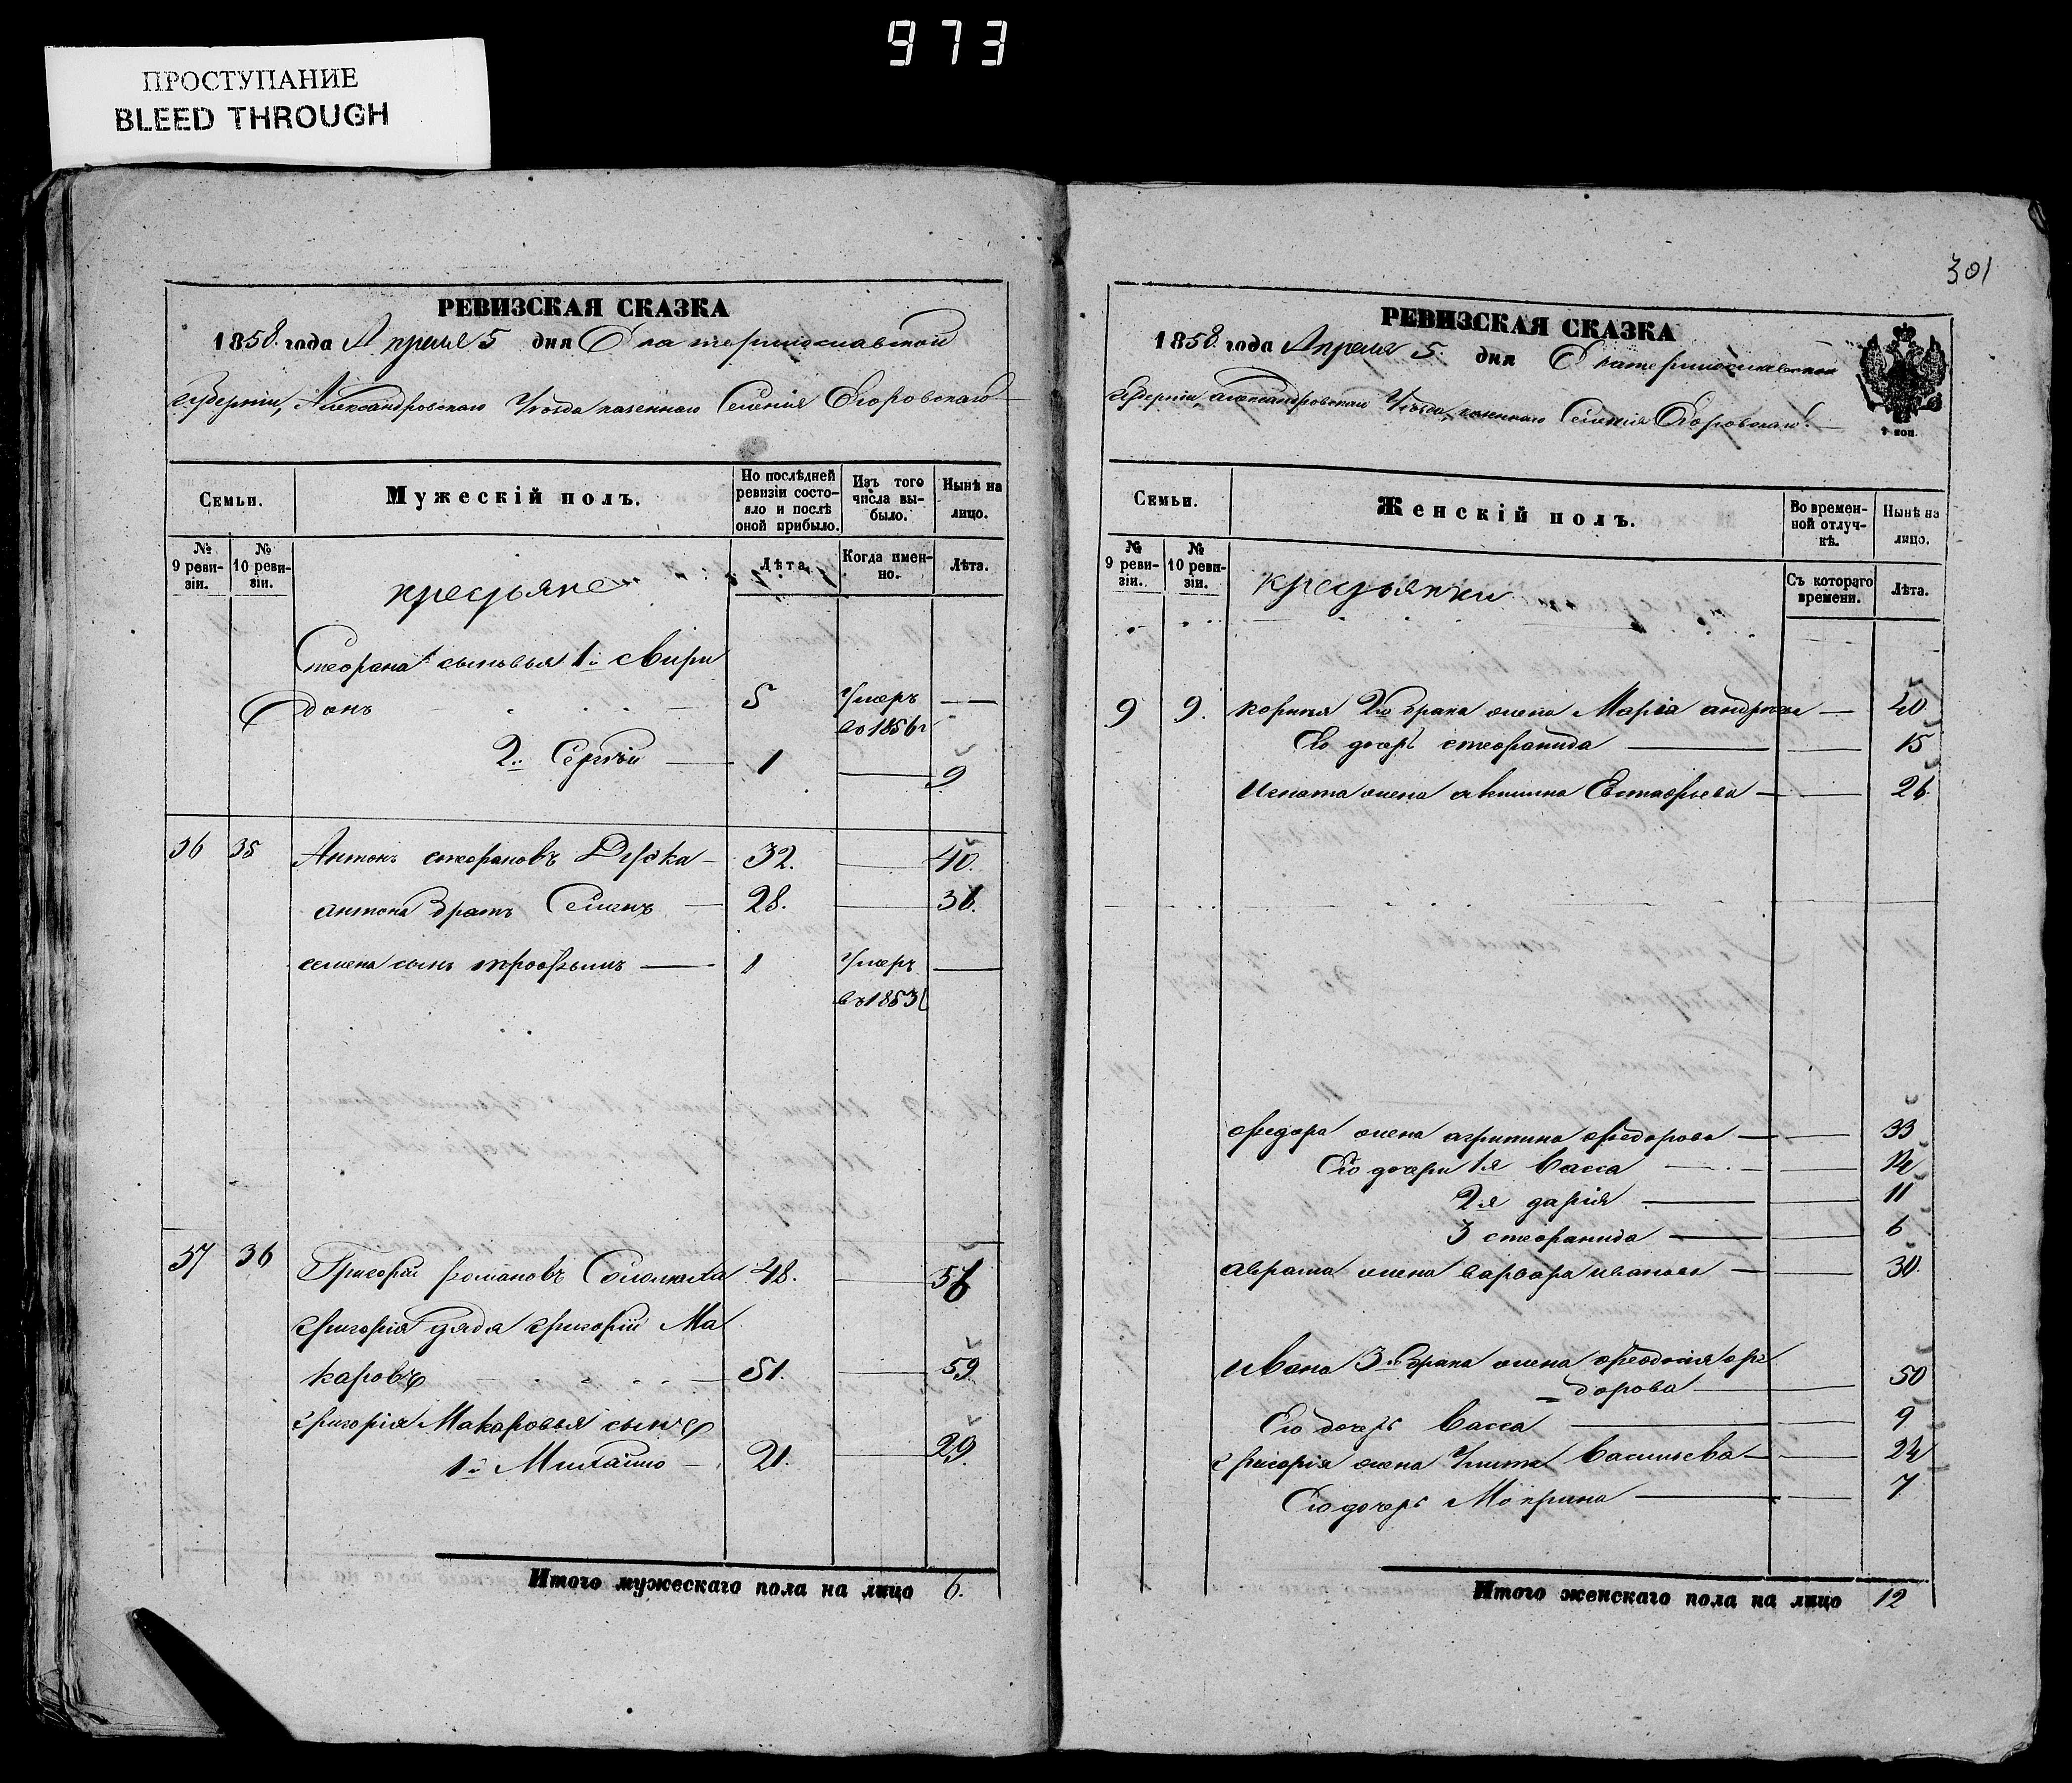 973
ПРОСТУПАНИЕ
BLEED THROUGH
РЕВИЗСКАЯ СКАЗКА
1858 года Апреля 5 дня Екатеринославской
Губернии, Александровскаго Уезда казеннаго Селения Егоровскаго
Семьи.
Мужескій полъ.
По послѣдней ревизіи состояло и послѣ оной прибыло.
Изъ того числа выбыло.
Нынѣ на лицо.
№ 9 ревизіи.
№ 10 ревизіи.
крестьяне
Лѣта.
Когда именно.
Лѣта.
Стефана сыновья 1й Свири
донъ 5 Умеръ
во 1856г
2й Сергѣй 1 9
36 35 Антонъ Стефановъ 32. 40.
Антона братъ Семенъ 28. 36.
Семена сынъ Трофимъ 1 Умеръ
въ 1853
37 36 Григорій Романовъ 48. 56
Григорія дядя Григорій Ма
каровъ 51. 59
Григорія Макаровья сынъ
1й Михайло 21. 29.
Итого мужескаго пола на лицо 6.
301
РЕВИЗСКАЯ СКАЗКА
1858 года Апреля 5 дня Екатеринославской
Губернии Александровскаго Уезда, казеннаго Селения Егоровскаго
Семьи.
Женскій полъ.
Во временной отлучкѣ.
Нынѣ на лицо.
№ 9 ревизіи.
№ 10 ревизіи.
крестьянки
Съ котораго времени.
Лѣта.
9 9. Корнея 2го брака жена Марія Андреева 40
Его дочерь Стефанида 15
Игната жена Акилина Евстафьева 26
Федора жена Агрипина Федорова 33
Его дочери 1я Васса 14
2я Дарія 11
3 Стефанида 6
Аврама жена Варвара Иванова 30
Ивана 3го брака жена Феодосія Фе
=дорова 50
Его дочерь Васса 9
Григорія жена Улита Васильева 24
Его дочерь Мокрина 7
Итого женскаго пола на лицо 12